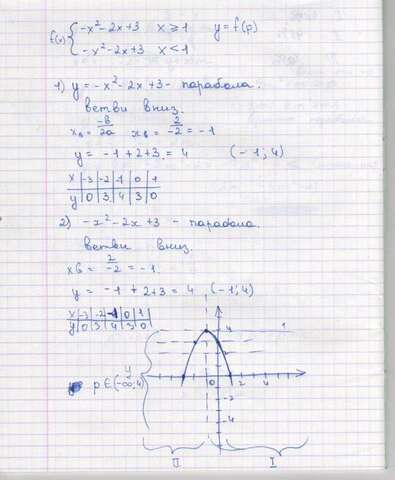 f(x){ -x²-2x+3 x≥1 y=f(p)
-x²-2x+3 x<1
1) y = -x²-2x+3 - парабола.
ветви вниз.
xв = -в/2a xв = 2/-2 = -1
y = -1+2+3 = 4 (-1; 4)
x -3 -2 -1 0 1
y 0 3 4 3 0
2) -x²-2x+3 - парабола.
ветви вниз.
xб = 2/-2 = -1
y = -1+2+3 = 4 (-1; 4)
x -3 -2 -1 0 1
y 0 3 4 3 0
4 1
y
p∈(-∞; 4) 0 2 4
-2
-4
II I